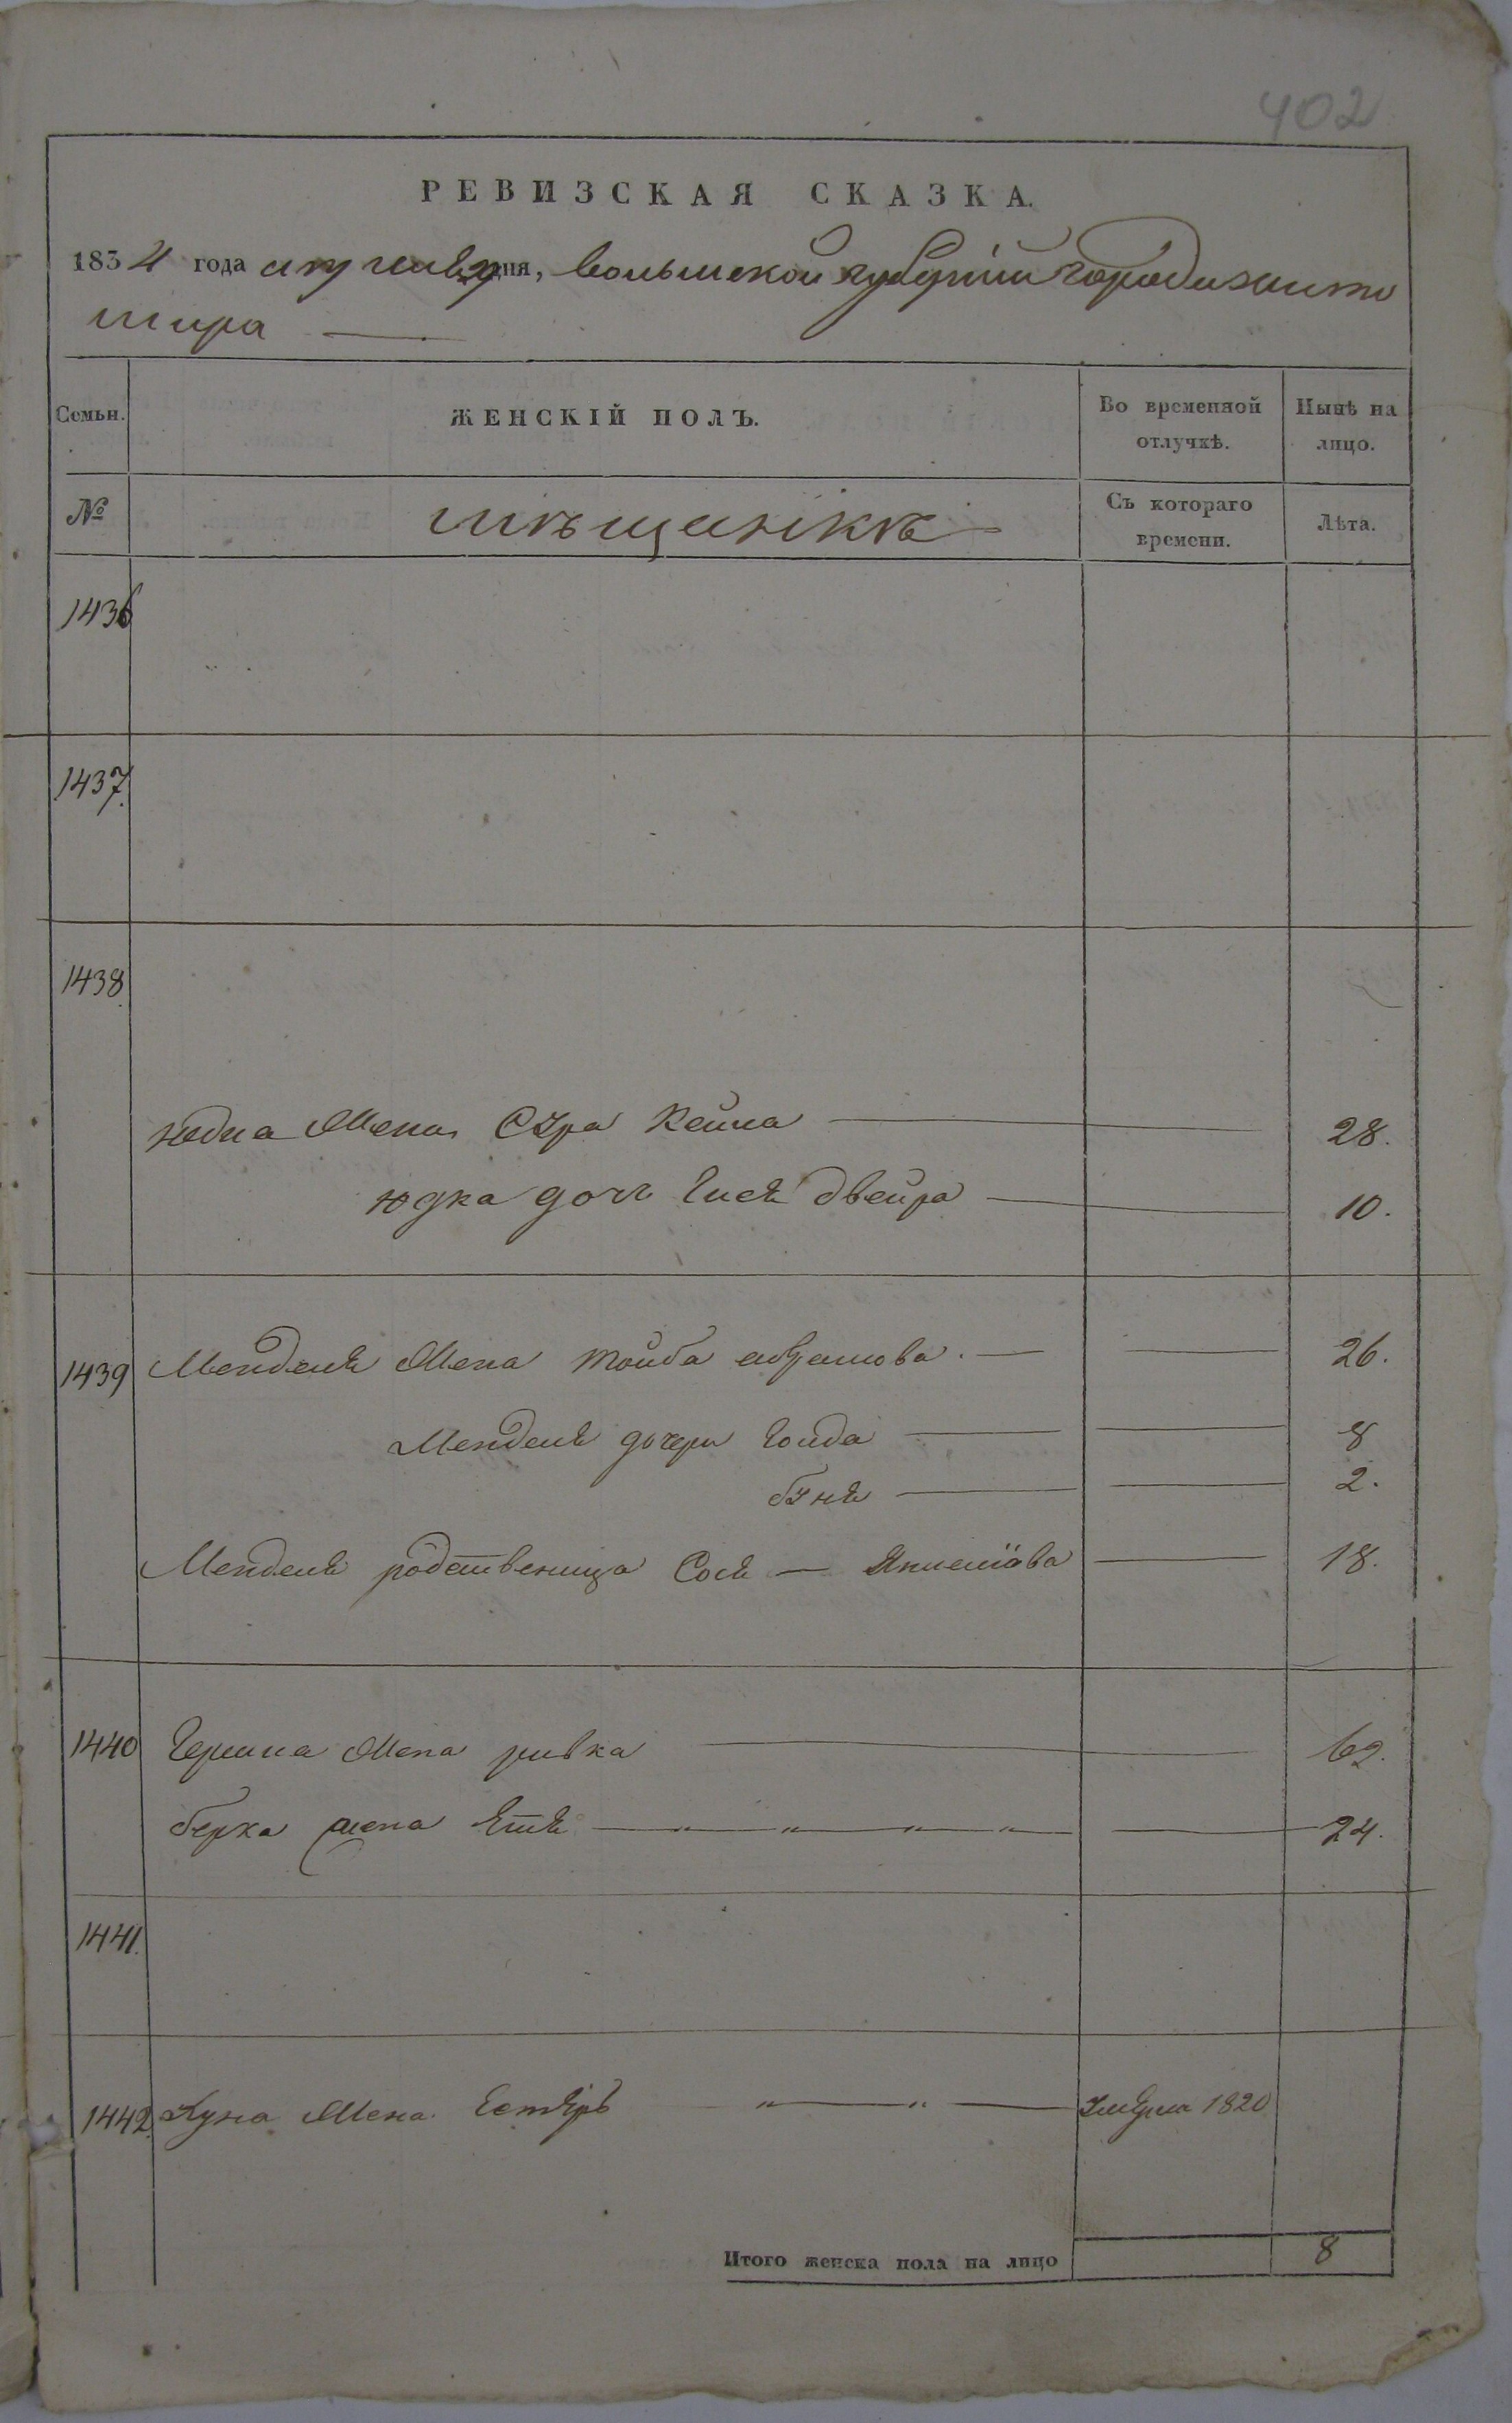 402
РЕВИЗСКАЯ СКАЗКА.
1834 года дня, волынской губернии города жито
мира
Семьи. ЖЕНСКІЙ ПОЛЪ. Во временной отлучкѣ. Нынѣ на лицо.
№ мѣщанікѣ Съ котораго времени. Лѣта.
1436
1437.
1438
жена Сура Кейла 28.
юдка дочь Гися двейра 10.
1439 Менделя Жена тойба абрамова. 26.
Менделя дочери голда 8
буня 2.
Менделя родственица Сося 18.
1440 Гершка Жена ривка 62.
берка жена Етя 24.
1441.
1442. Куна Жена Естѣръ умерла 1820
Итого женска пола на лицо 8